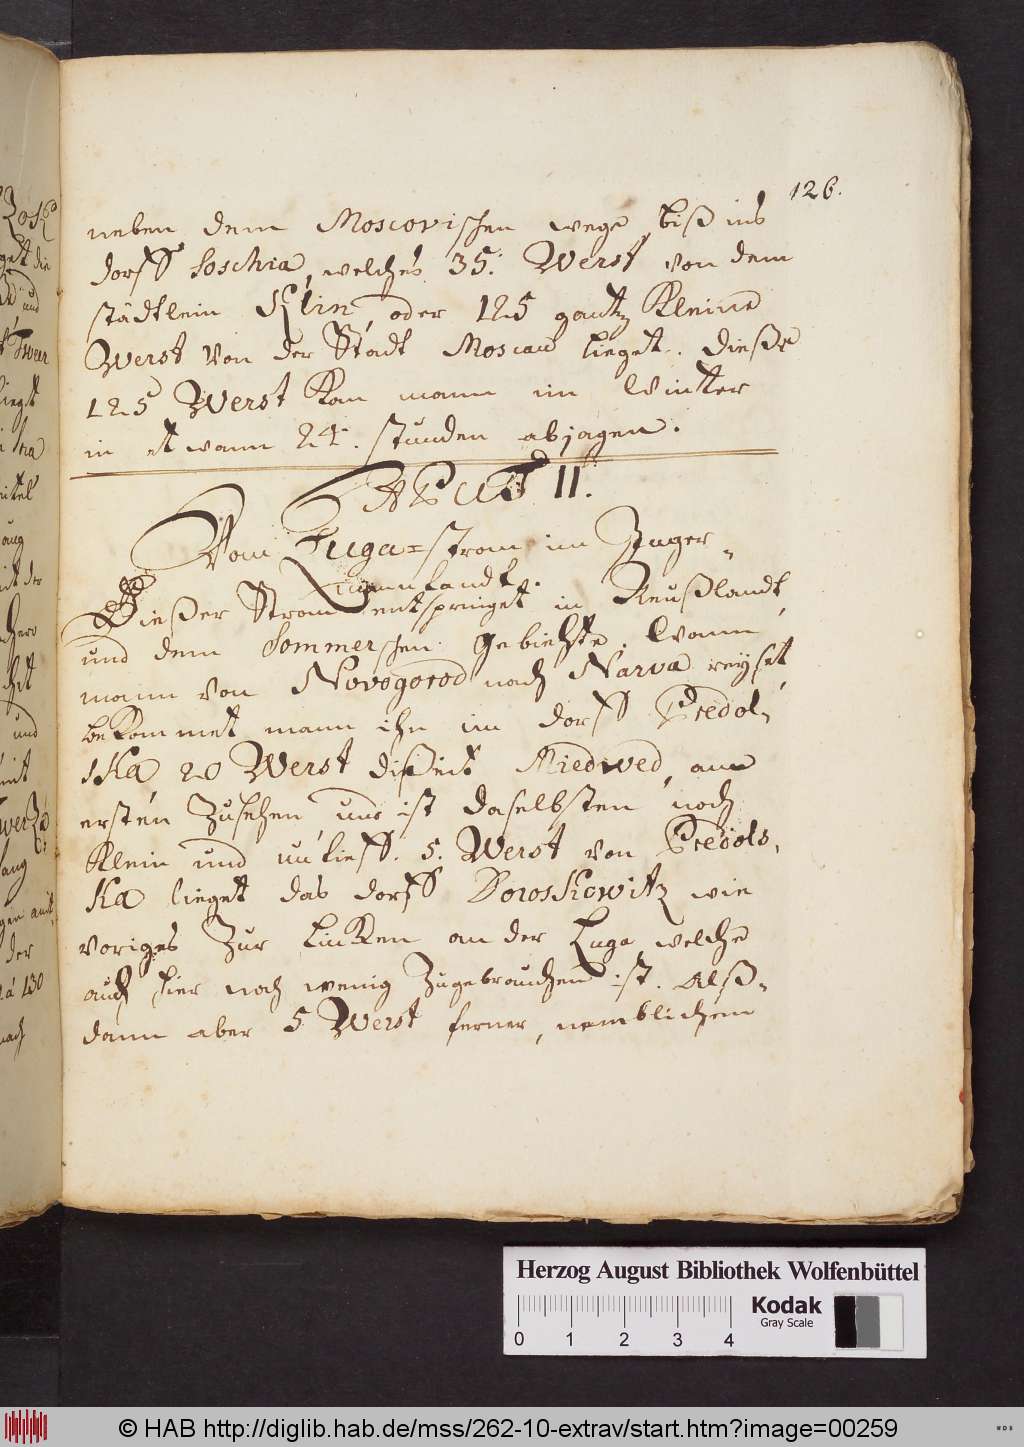 126.
neben dem Moscovischen wege, biß ins
dorff Soschia, welches 35. Werst von dem
städtlein Klin, oder 125 gantz Kleine
Werst von der Stadt Moscau lieget. Dieße
125 Werst kan mann im Winter
in etwann 24. stunden abjagen.
CAPUT II.
Vom Luga=strom im Inger-
mannlandt.
Dießer Strom entspringet in Reußlandt,
und dem Sommerschen Gebiehte. Wann
mann von Novogorod nach Narva reyset,
bekommet mann ihn im dorff Predol,
ska, 20 Werst dißeit Miedwed, am
ersten Zusehen, und ist daselbsten noch
Klein und untieff. 5. Werst von Predols,
ka lieget das dorff Doroskowitz wie
voriges Zur Lincken an der Luga, welche
auch hier noch wenig Zugebrauchen ist. Alß-
dann aber 5 Werst ferner, nemblichem
Herzog August Bibliothek Wolfenbüttel
0 1 2 3 4
Kodak
Gray Scale
© HAB http://diglib.hab.de/mss/262-10-extrav/start.htm?image=00259